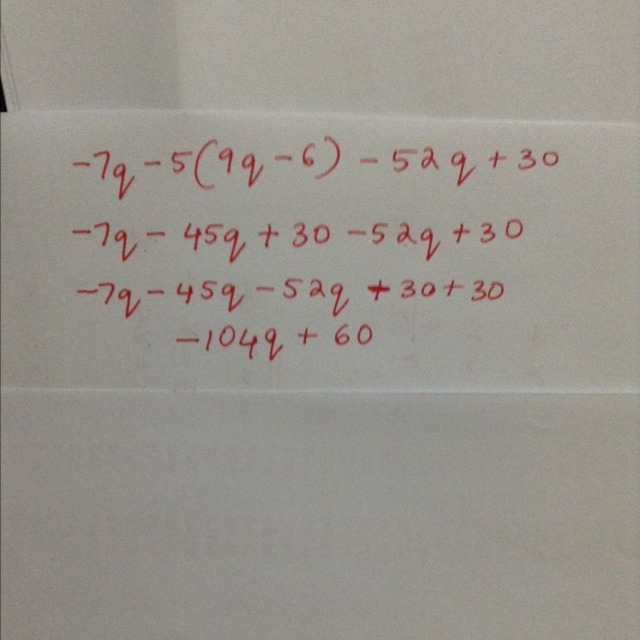 -7q - 5(9q - 6) - 52q + 30
-7q - 45q + 30 - 52q + 30
-7q - 45q - 52q + 30 + 30
-104q + 60